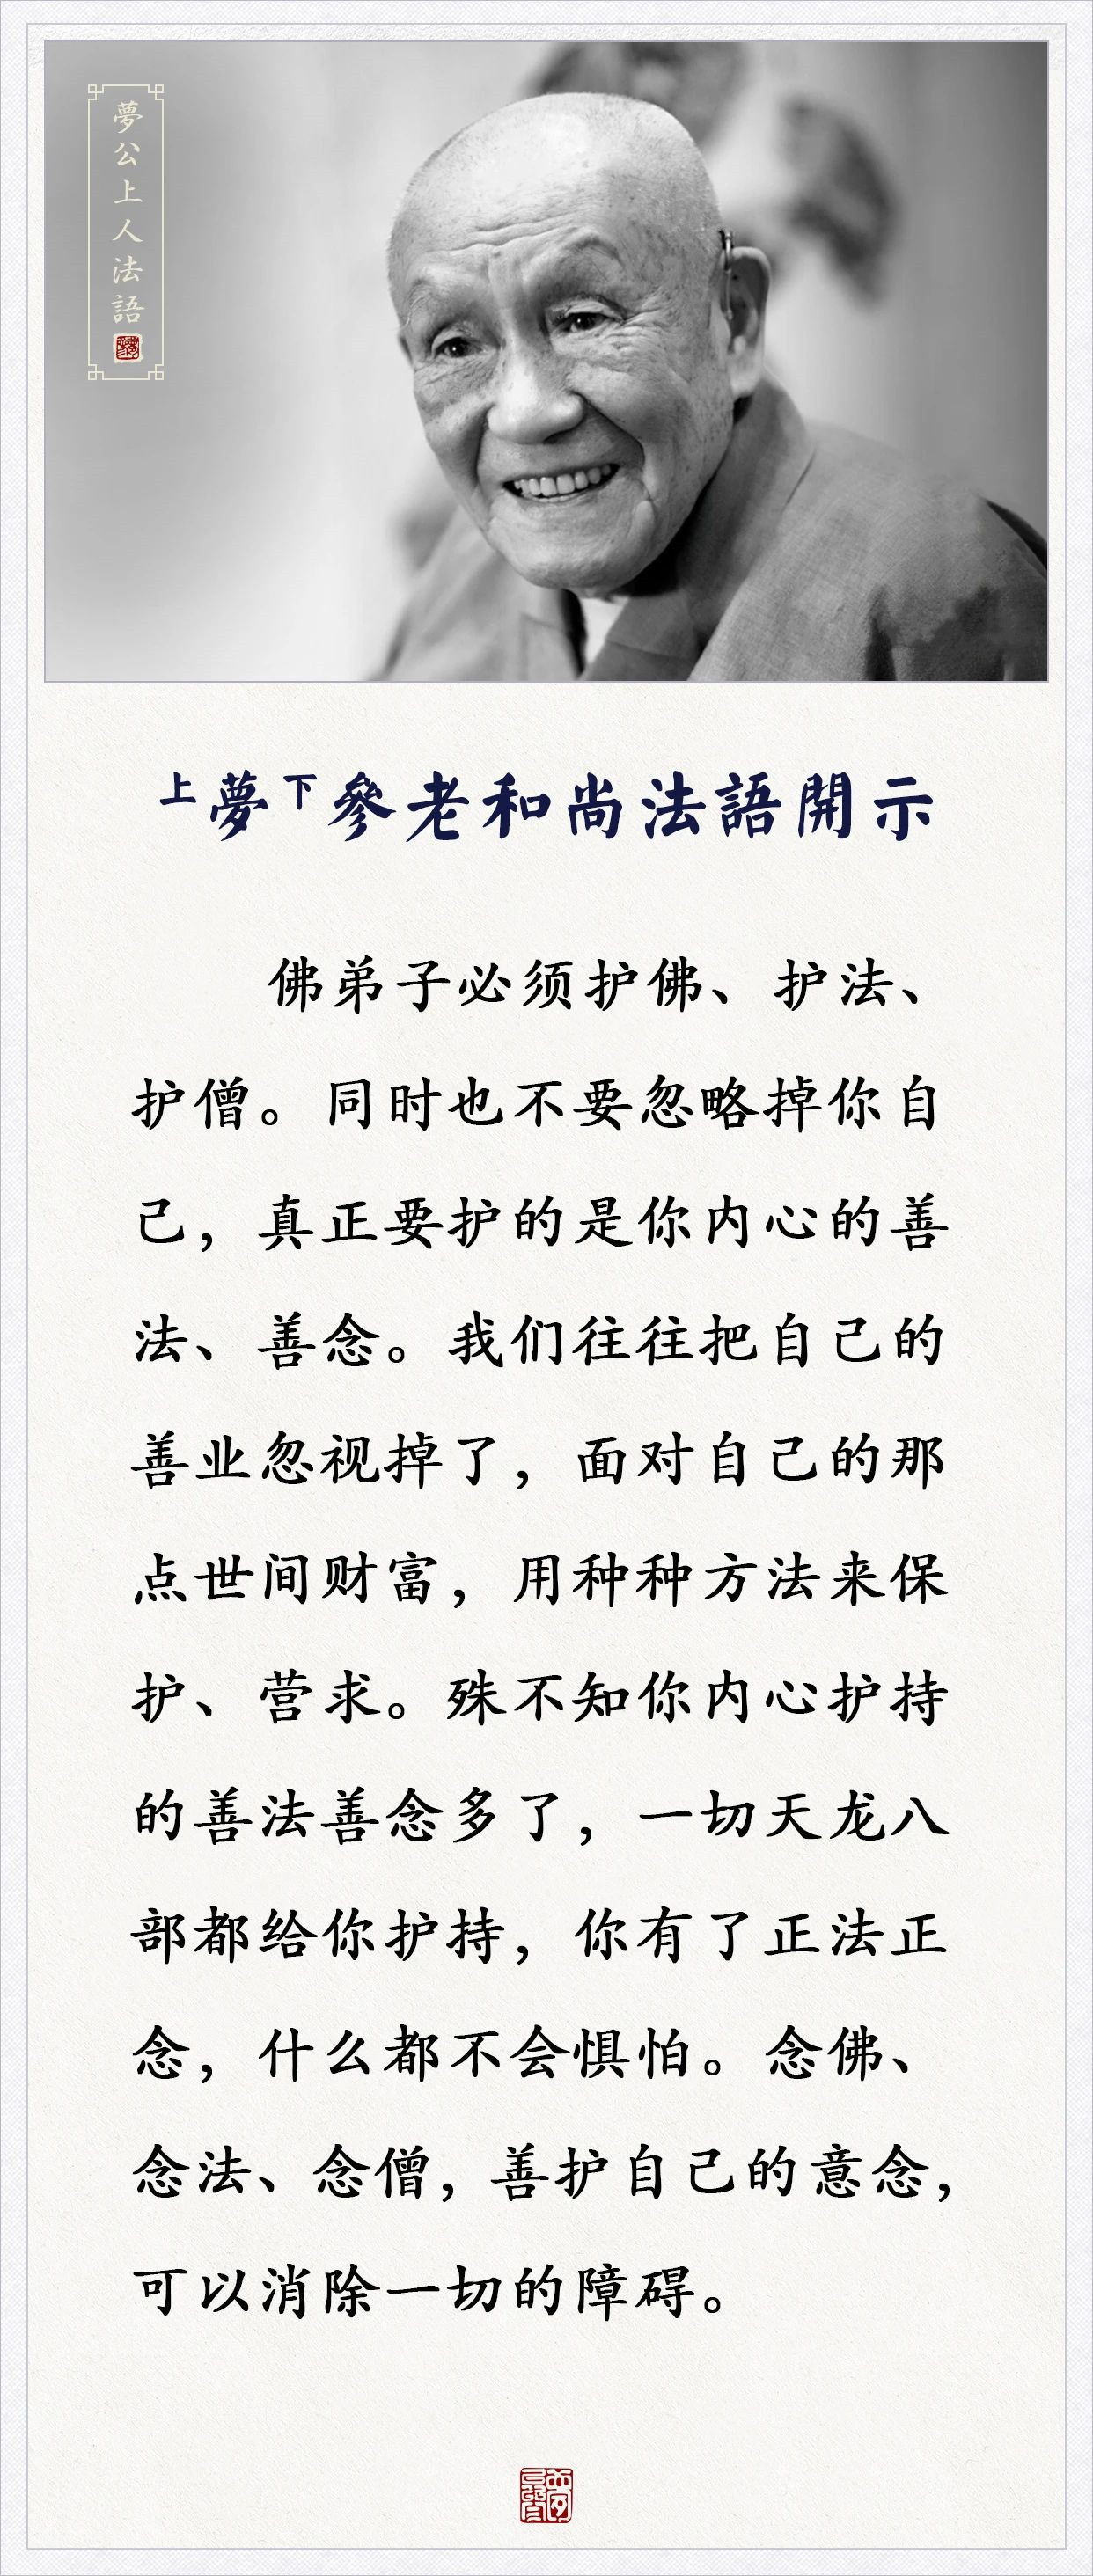 夢公上人法語
上夢下參老和尚法語開示
佛弟子必须护佛、护法、
护僧。同时也不要忽略掉你自
己，真正要护的是你内心的善
法、善念。我们往往把自己的
善业忽视掉了，面对自己的那
点世间财富，用种种方法来保
护、营求。殊不知你内心护持
的善法善念多了，一切天龙八
部都给你护持，你有了正法正
念，什么都不会惧怕。念佛、
念法、念僧，善护自己的意念，
可以消除一切的障碍。